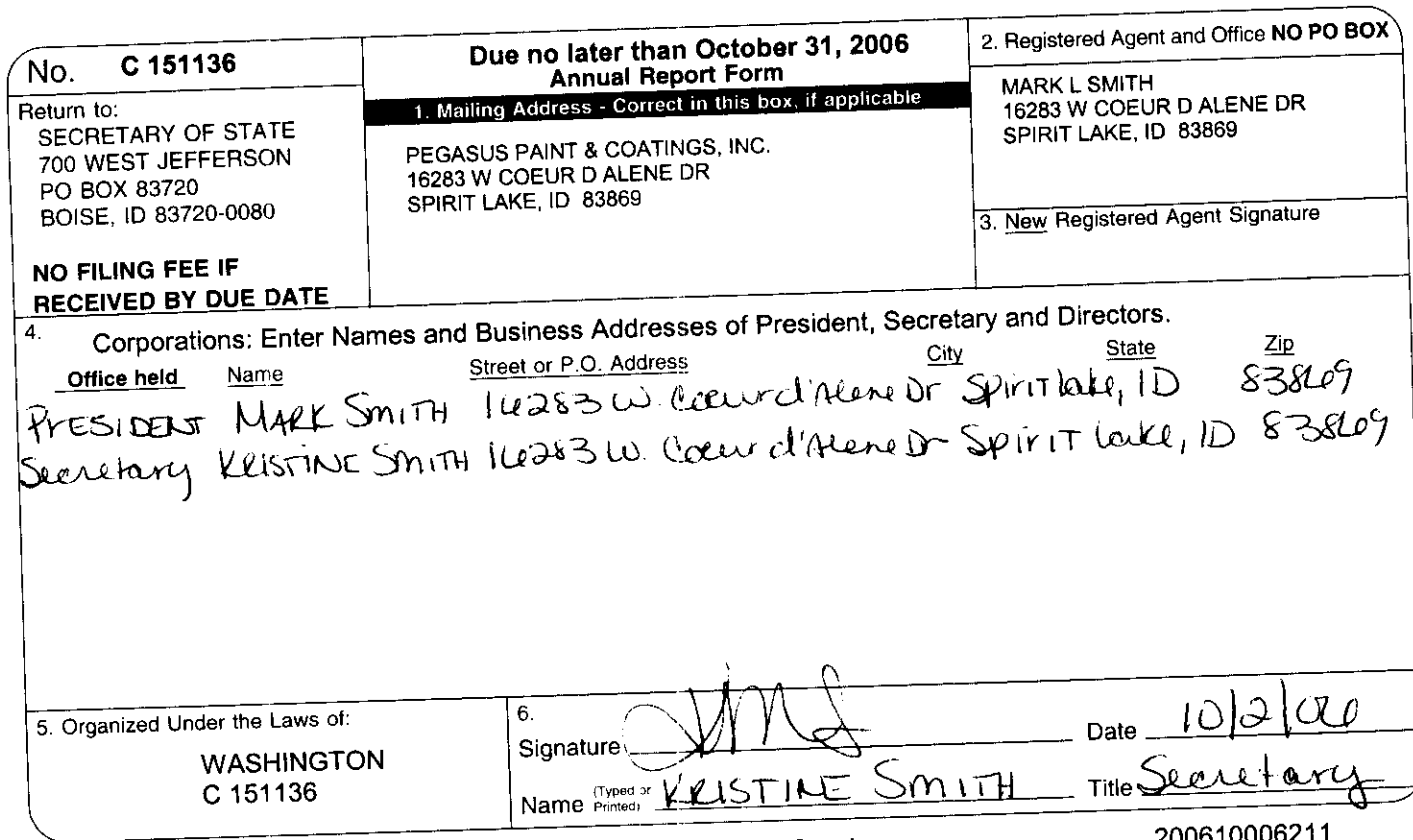 No. C 151136
Return to:
SECRETARY OF STATE
700 WEST JEFFERSON
PO BOX 83720
BOISE, ID 83720-0080
NO FILING FEE IF
RECEIVED BY DUE DATE
Due no later than October 31, 2006
Annual Report Form
1. Mailing Address - Correct in this box, if applicable
PEGASUS PAINT & COATINGS, INC.
16283 W COEUR D ALENE DR
SPIRIT LAKE, ID 83869
2. Registered Agent and Office NO PO BOX
MARK L SMITH
16283 W COEUR D ALENE DR
SPIRIT LAKE, ID 83869
3. New Registered Agent Signature
4. Corporations: Enter Names and Business Addresses of President, Secretary and Directors.
Office held Name Street or P.O. Address City State Zip
PRESIDENT MARK SMITH 16283 W. Coeur d'Alene Dr Spirit lake, ID 83869
Secretary KRISTINE SMITH 16283 W. Coeur d'Alene Dr Spirit lake, ID 83869
5. Organized Under the Laws of:
WASHINGTON
C 151136
6.
Signature
Date 10/2/06
Name (Typed or Printed) KRISTINE SMITH Title Secretary
200610006211